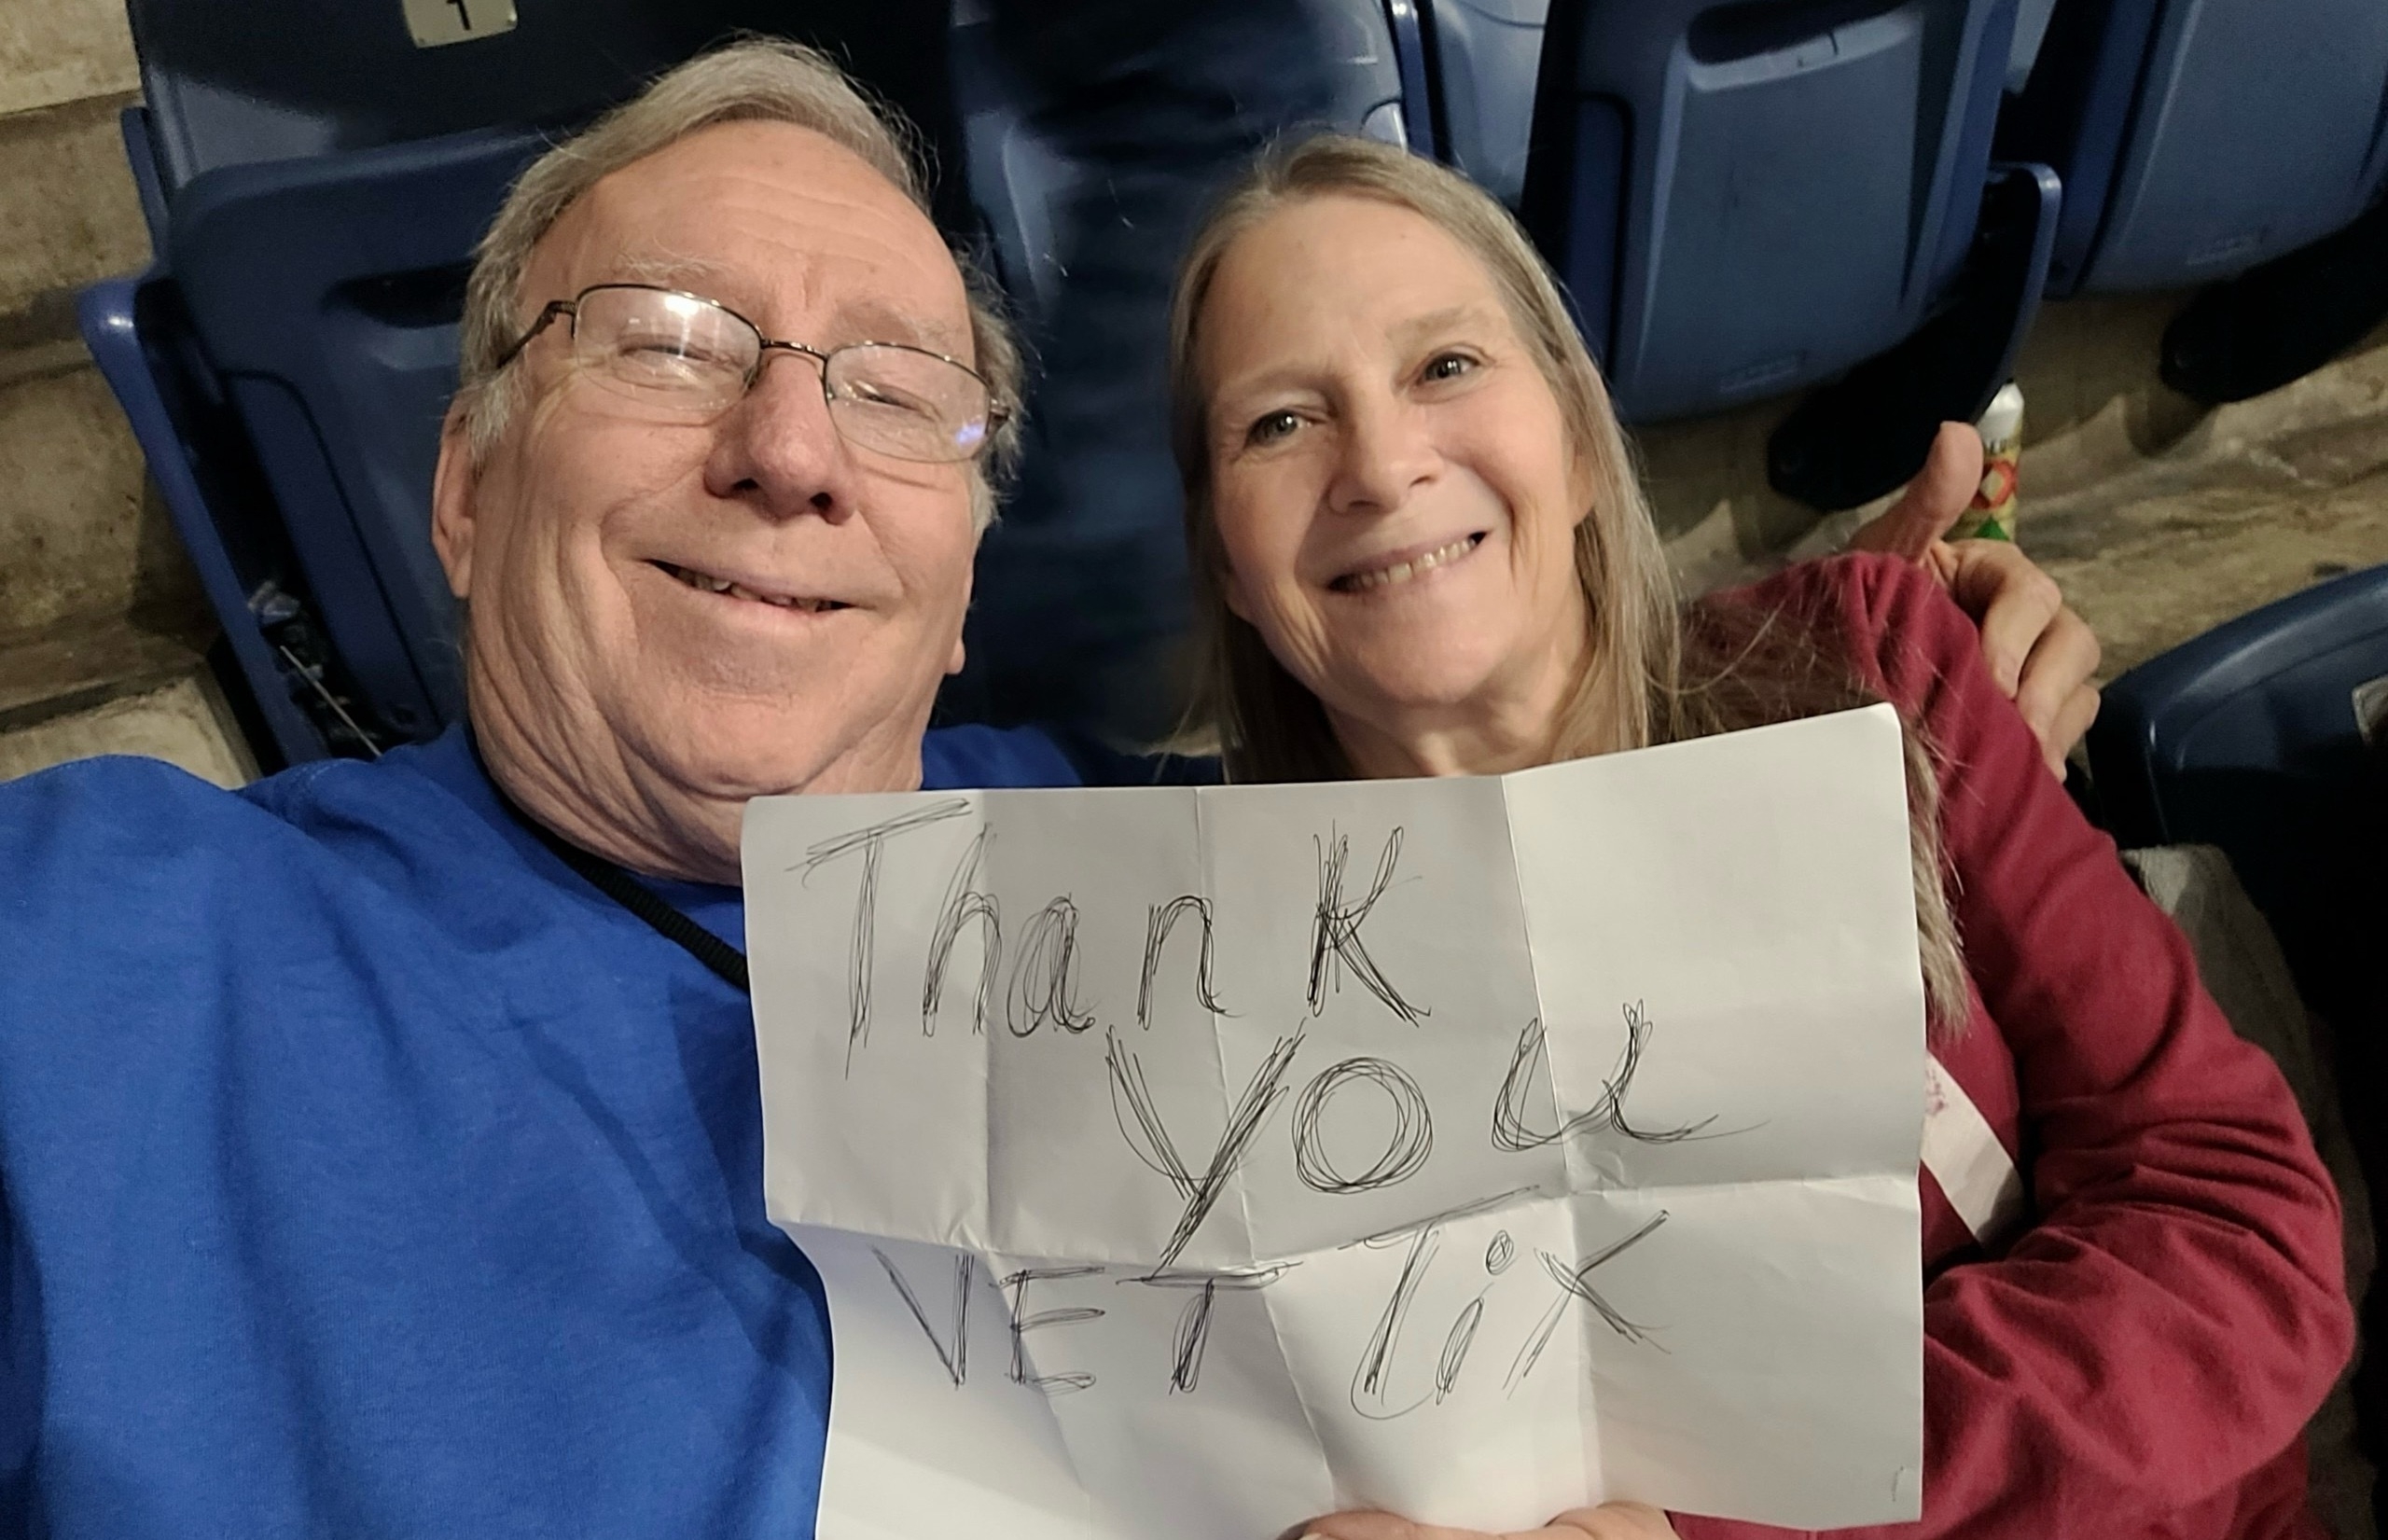 1
Thank
you
VET Tix